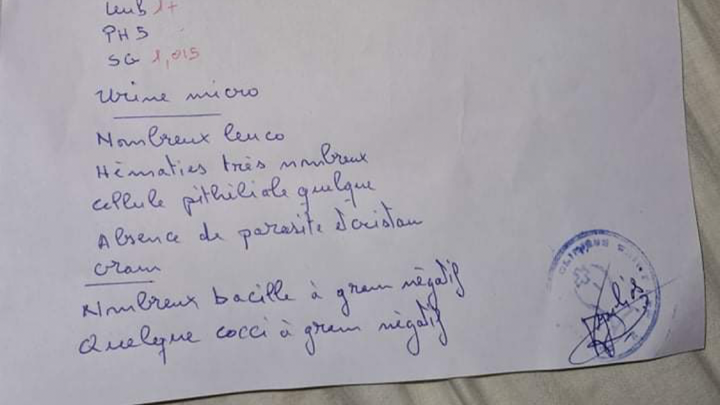 Leub 1+
PH 5
SG 1,015
Urine micro
Nombreux leuco
Hèmaties très nombreux
cellule pithéliale quelque
Absence de parasite et cristau
Gram
Nombreux bacille à gram nègatif
Quelque cocci à gram nègatif